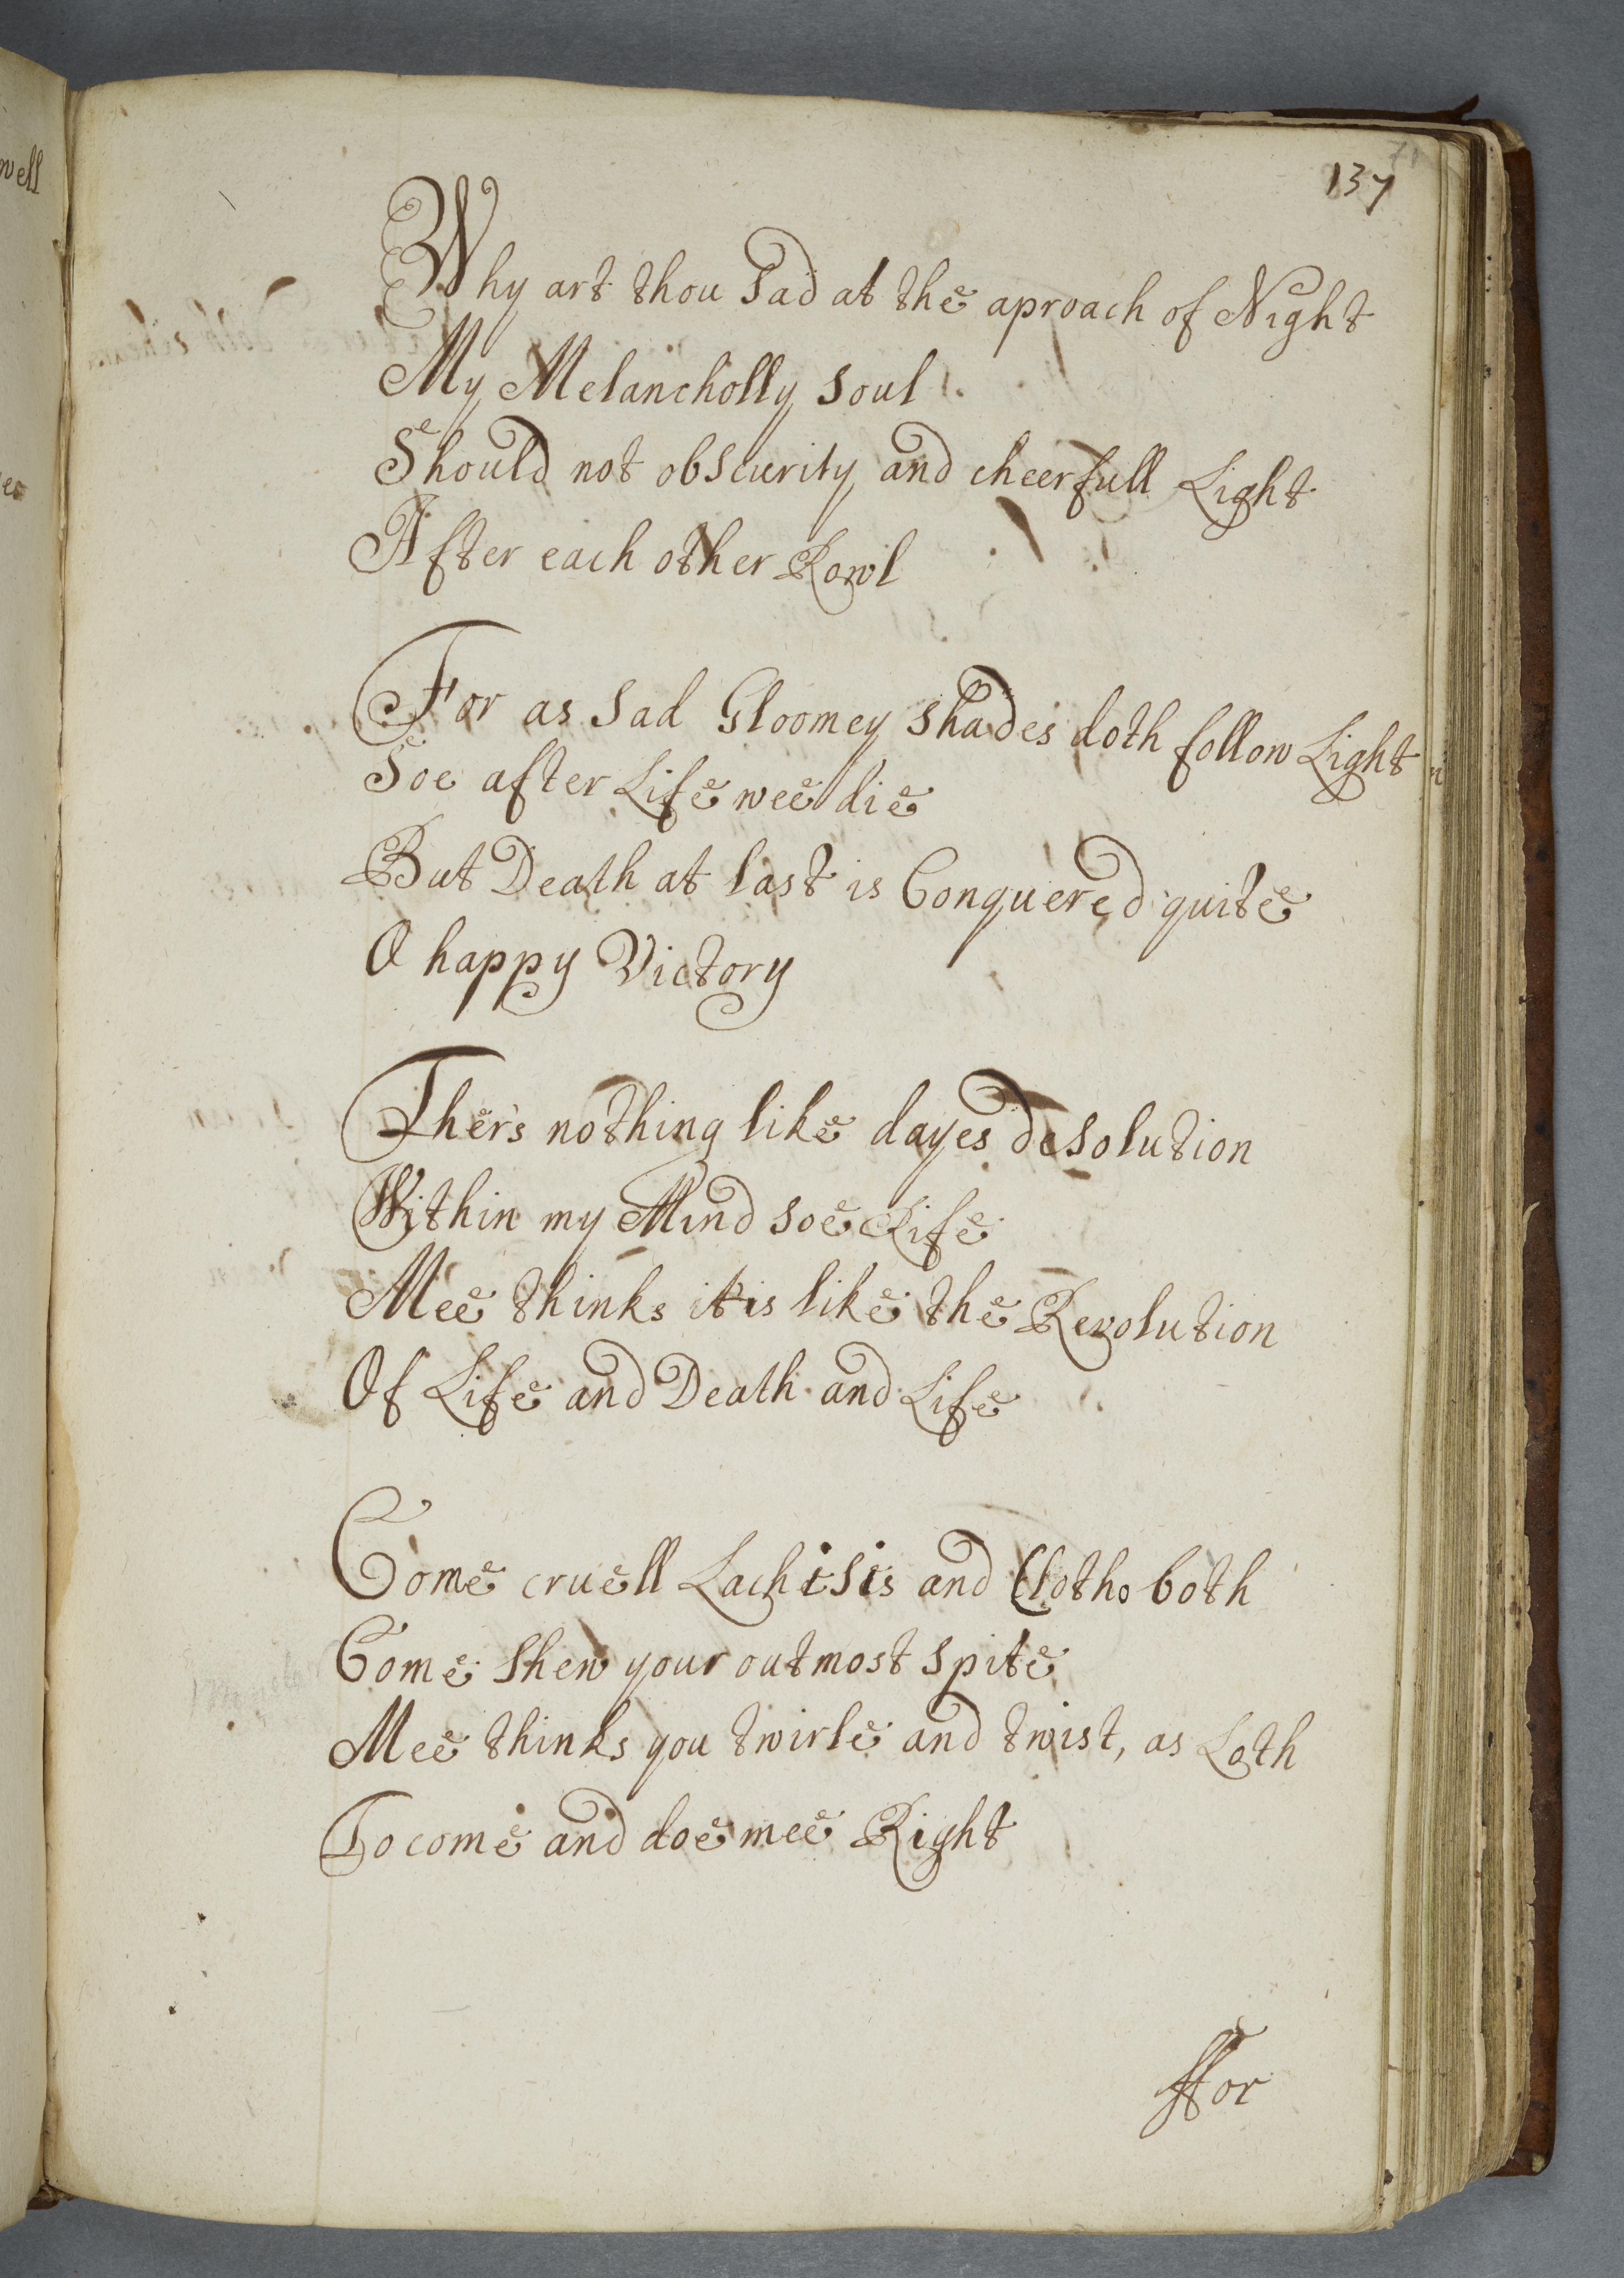 well
71
137
Why art thou Sad at the aproach of Night
My Melancholly Soul
Should not obscurity and cheerfull Light
After each other Rowl
For as Sad Gloomey Shades doth follow Light
Soe after Life wee die
But Death at last is Conquered quite
O happy Victory
Ther's nothing like dayes desolution
Within my Mind soe Rife
Mee thinks it is like the Revolution
Of Life and Death and Life
Come cruell Lachisis and Clotho both
Come Shew your outmost Spite
Mee thinks you twirle and twist, as Loth
To come and doe mee Right
ffor